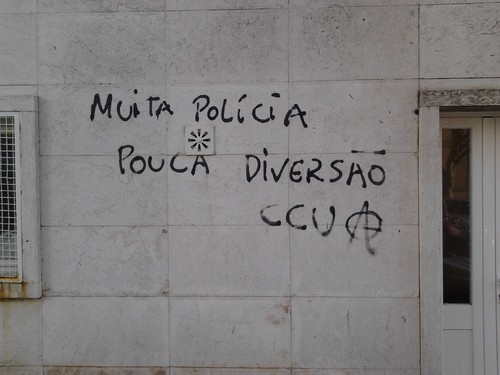 MUITA POLÍCIA
POUCA DIVERSÃO
CCUA